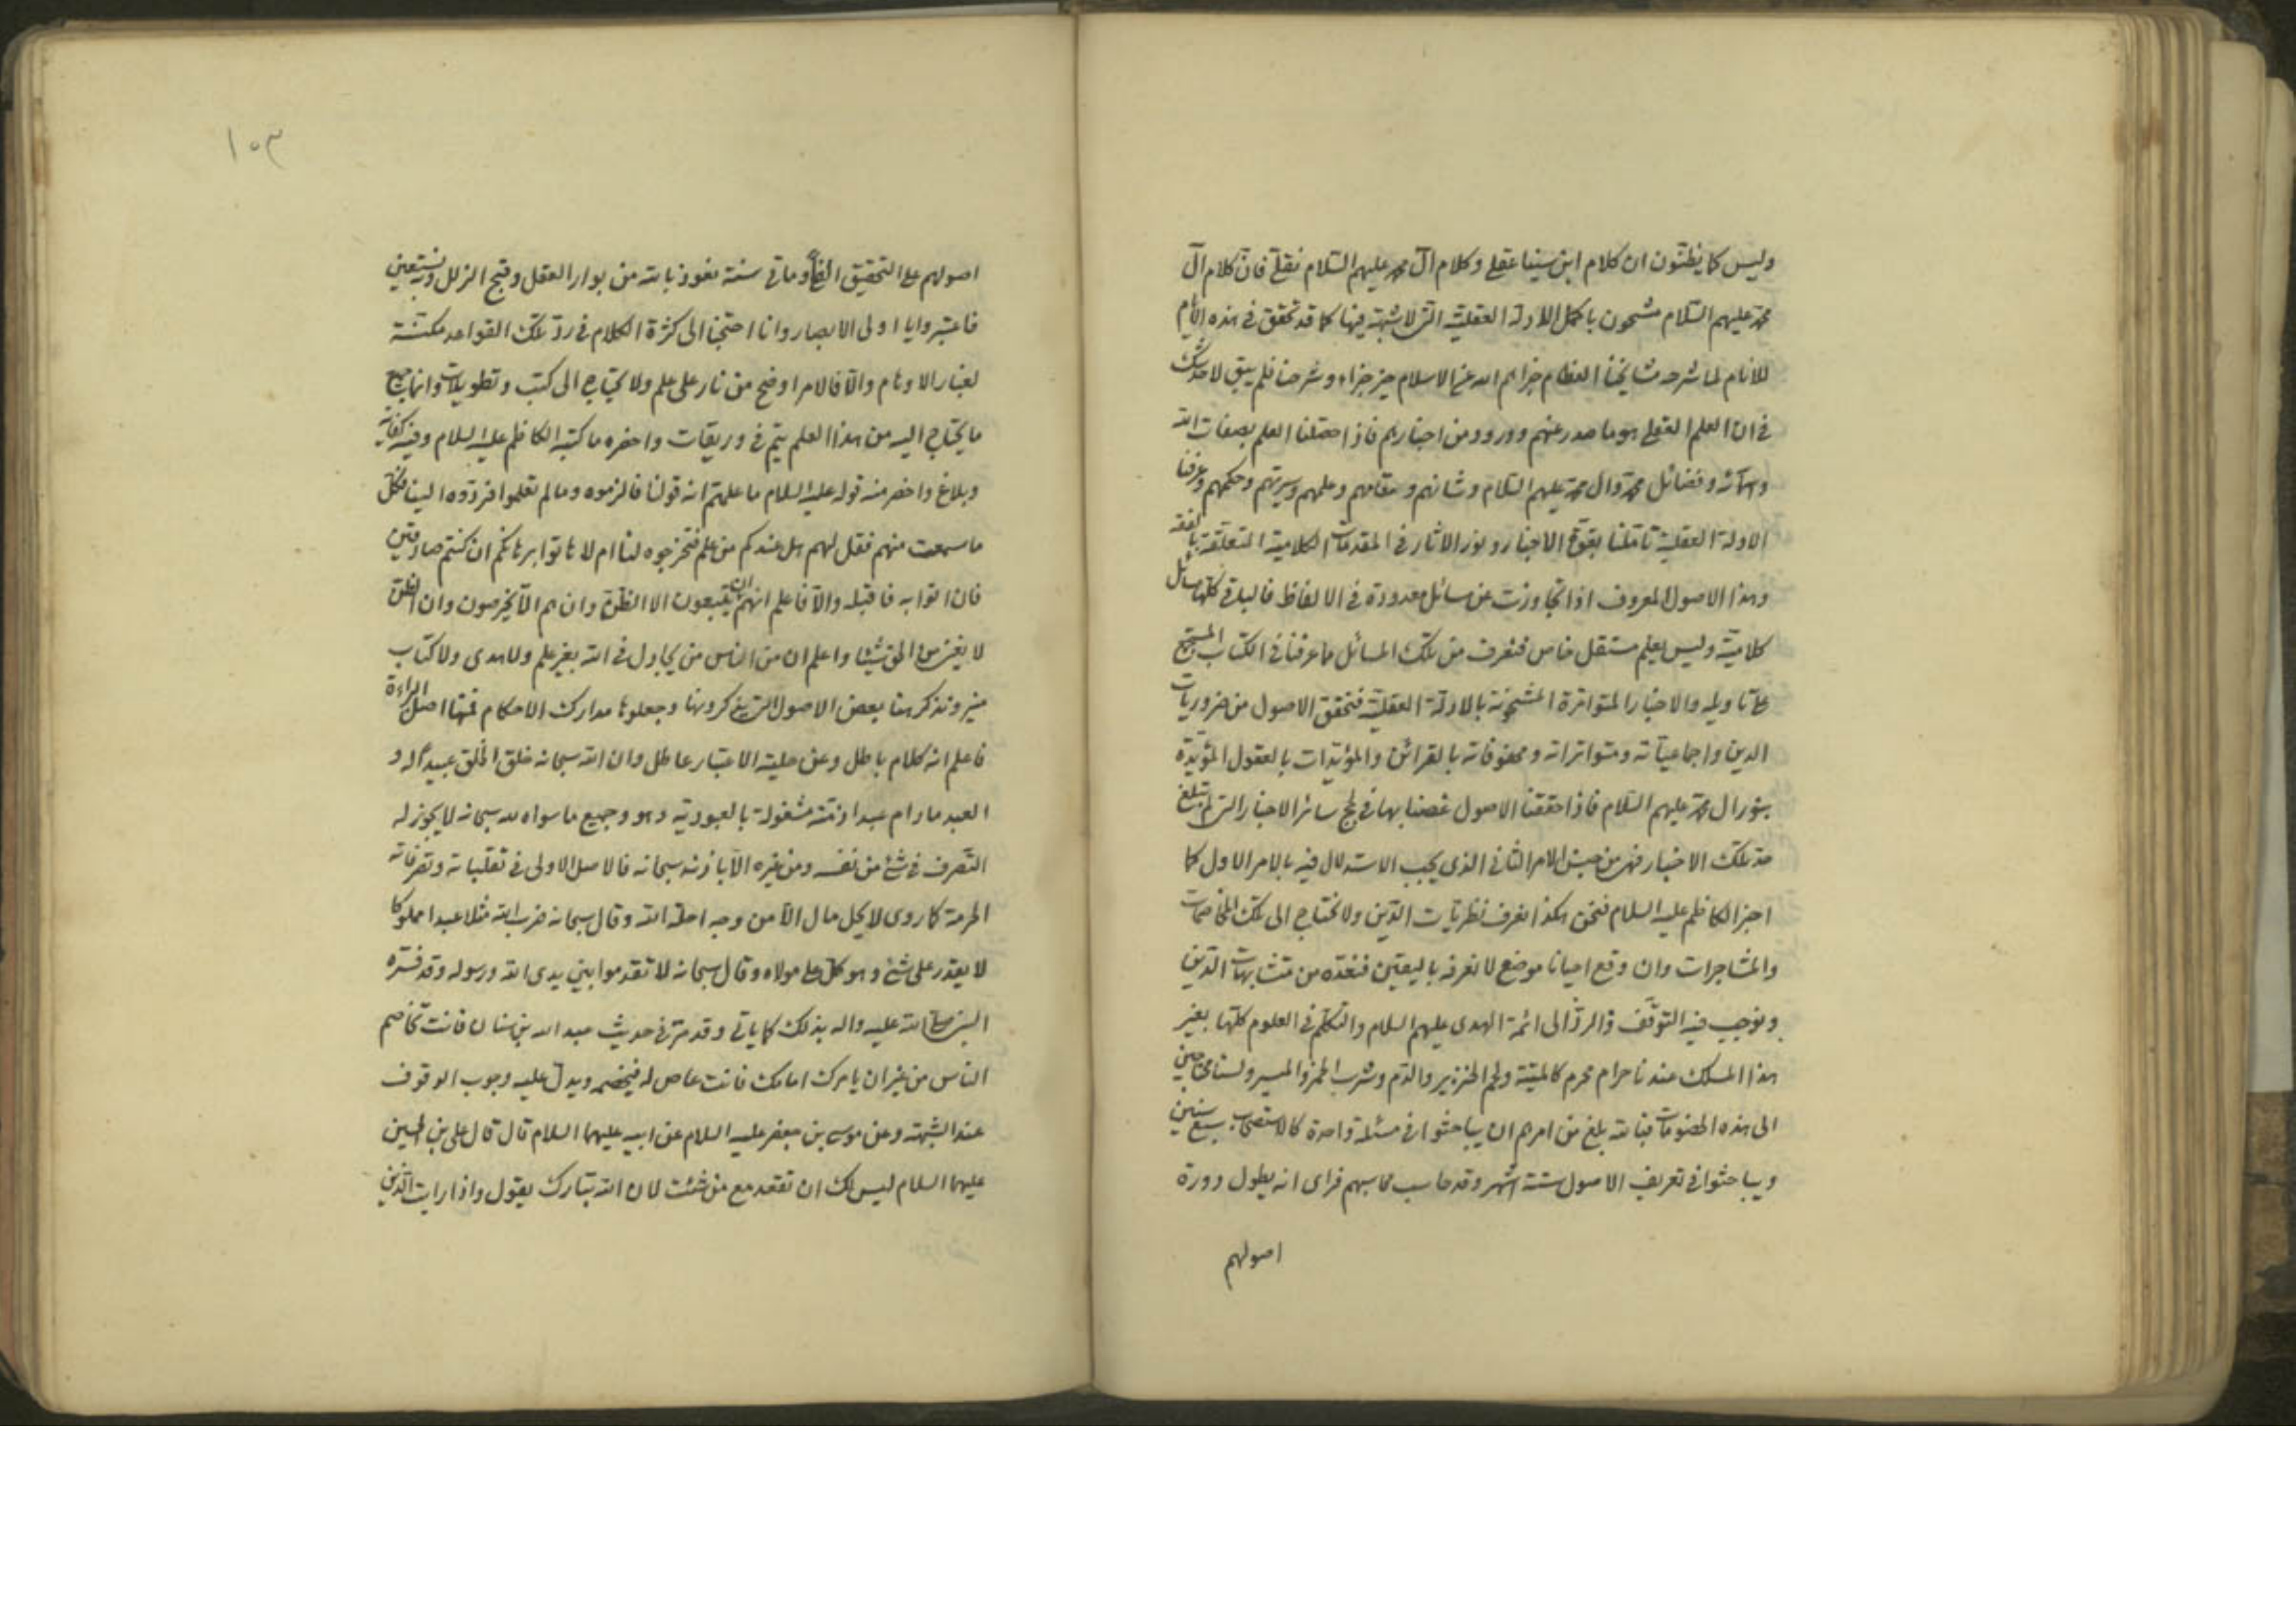 وليس كما يظنّون ان كلام ابن سينا عقلي وكلام آل محمد عليهم السّلام نقلي فانّ كلام آل
محمد عليهم السّلام مشحون باكمل الادلة العقلية التي لا شبهة فيها كما قد تحقق في هذه الايام
للانام لما شرحه مشايخنا العظام جزاهم الله عن الاسلام خير جزاء وشرحنا فلم يبق لاحد شك
في ان العلم العقلي هو ما صدر عنهم وورود من اخبارهم فاذا حصلنا العلم بصفات الله
واسمائه وفضائل محمد وال محمد عليهم السّلام وشانهم ومقامهم وعلمهم وسيرتهم وحكمهم وعرفنا
الادلة العقلية تاملنا بقوة الاخبار ونور الاثار في المقدمات الكلامية المتعلقة بالفقه
وهذا الاصول المعروف اذا تجاوزت عن مسائل معدودة في الالفاظ فالباقي كلها مسائل
كلامية وليس بعلم مستقل خاص فنعرف من تلك المسائل ما عرفنا في الكتاب المستجمع
على تاويله والاخبار المتواترة المشحونة بالادلة العقلية فتحقق الاصول من ضروريات
الدين واجماعياته ومتواتراته ومحفوفاته بالقرائن والمؤيّدات بالعقول المؤيّدة
بنور ال محمد عليهم السّلام فاذا حققنا الاصول غصنا بها في لجج سائر الاخبار التي لم تبلغ
حد تلك الاخبار فهي من جنس الامر الثاني الذي يجب الاستدلال فيه بالامر الاول كما
اخبر الكاظم عليه السلام فنحن هكذا نعرف نظريات الدّين ولا نحتاج الى تلك المخاصمات
والمشاجرات وان وقع احيانا موضع لا نعرفه باليقين فنعدّه من متشابهات الدّين
ونوجب فيه التوقّف والردّ الى ائمة الهدى عليهم السلام والتكلّم في العلوم كلّها بغير
هذا المسلك عندنا حرام محرم كالميتة ولحم الخنزير والدّم وشرب الخمر والميسر ولسنا محتاجين
الى هذه الخصومات فبالله بلغ من امرهم ان يباحثوا في مسئلة واحدة كالاستصحاب سبع سنين
ويباحثوا في تعريف الاصول ستة اشهر وقد حاسب محاسبهم فراى انه يطول دورة
اصولهم
١٠٣
اصولهم على التحقيق الفا وماتي سنة نعوذ بالله من بوار العقل وقبح الزلل وبه نستعين
فاعتبروا يا اولى الابصار وانا احتجنا الى كثرة الكلام في ردّ تلك القواعد مكنسة
لغبار الاوهام والّا فالامر اوضح من نار على علم ولا يحتاج الى كتب وتطويلات وانما جميع
ما يحتاج اليه من هذا العلم يتم في وريقات واحضره ما كتبه الكاظم عليه السلام وفيه كفاية
وبلاغ واخصر منه قوله عليه السلام ما علمتم انه قولنا فالزموه وما لم تعلموا فردّوه الينا فكلّ
ما سمعت منهم فقل لهم هل عندكم من علم فتخرجوه لنا ام لا هاتوا برهانكم ان كنتم صادقين
فان اتوا به فاقبله والّا فاعلم انهم ان يتبعون الا الظنّ وان هم الّا يخرصون وان الظن
لا يغني من الحق شيئا واعلم ان من الناس من يجادل في الله بغير علم ولا هدى ولا كتاب
منير ونذكر هنا بعض الاصول التي ذكروها وجعلوها مدارك الاحكام فمنها اصل البراءة
فاعلم انه كلام باطل وعن حلية الاعتبار عاطل وان الله سبحانه خلق الخلق عبيدا له و
العبد مادام عبدا ذمّته مشغولة بالعبودية وهو وجميع ما سواه لله سبحانه لا يجوز له
التّصرف في شئ من نفسه ومن غيره الّا باذنه سبحانه فالاصل الاولى في تقلباته وتصرفاته
الحرمة كما روى لا يحل مال الّا من وجه احله الله وقال سبحانه ضرب الله مثلا عبدا مملوكا
لا يقدر على شئ وهو كلّ على مولاه وقال سبحانه لا تقدموا بين يدى الله ورسوله وقد فسّره
النبي صلى الله عليه واله بذلك كما ياتي وقد مرّ في حديث عبد الله بن سنان فانت تخاصم
الناس من غير ان يامرك امامك فانت عاص له فيخصم ويدلّ عليه وجوب الوقوف
عند الشبهة وعن موسى بن جعفر عليه السلام عن ابيه عليهما السلام قال قال على بن الحسين
عليهما السلام ليس لك ان تقعد مع من شئت لان الله تبارك يقول واذا رايت الّذين